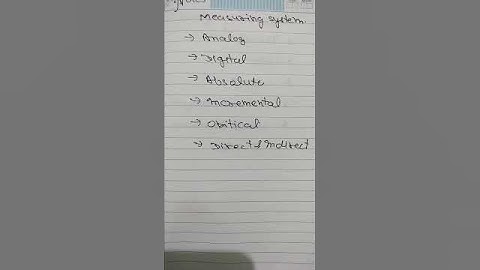 Measuring system.
→ Analog
→ Digital
→ Absolute
→ Incremental
→ Obitical
→ Direct & Indirect